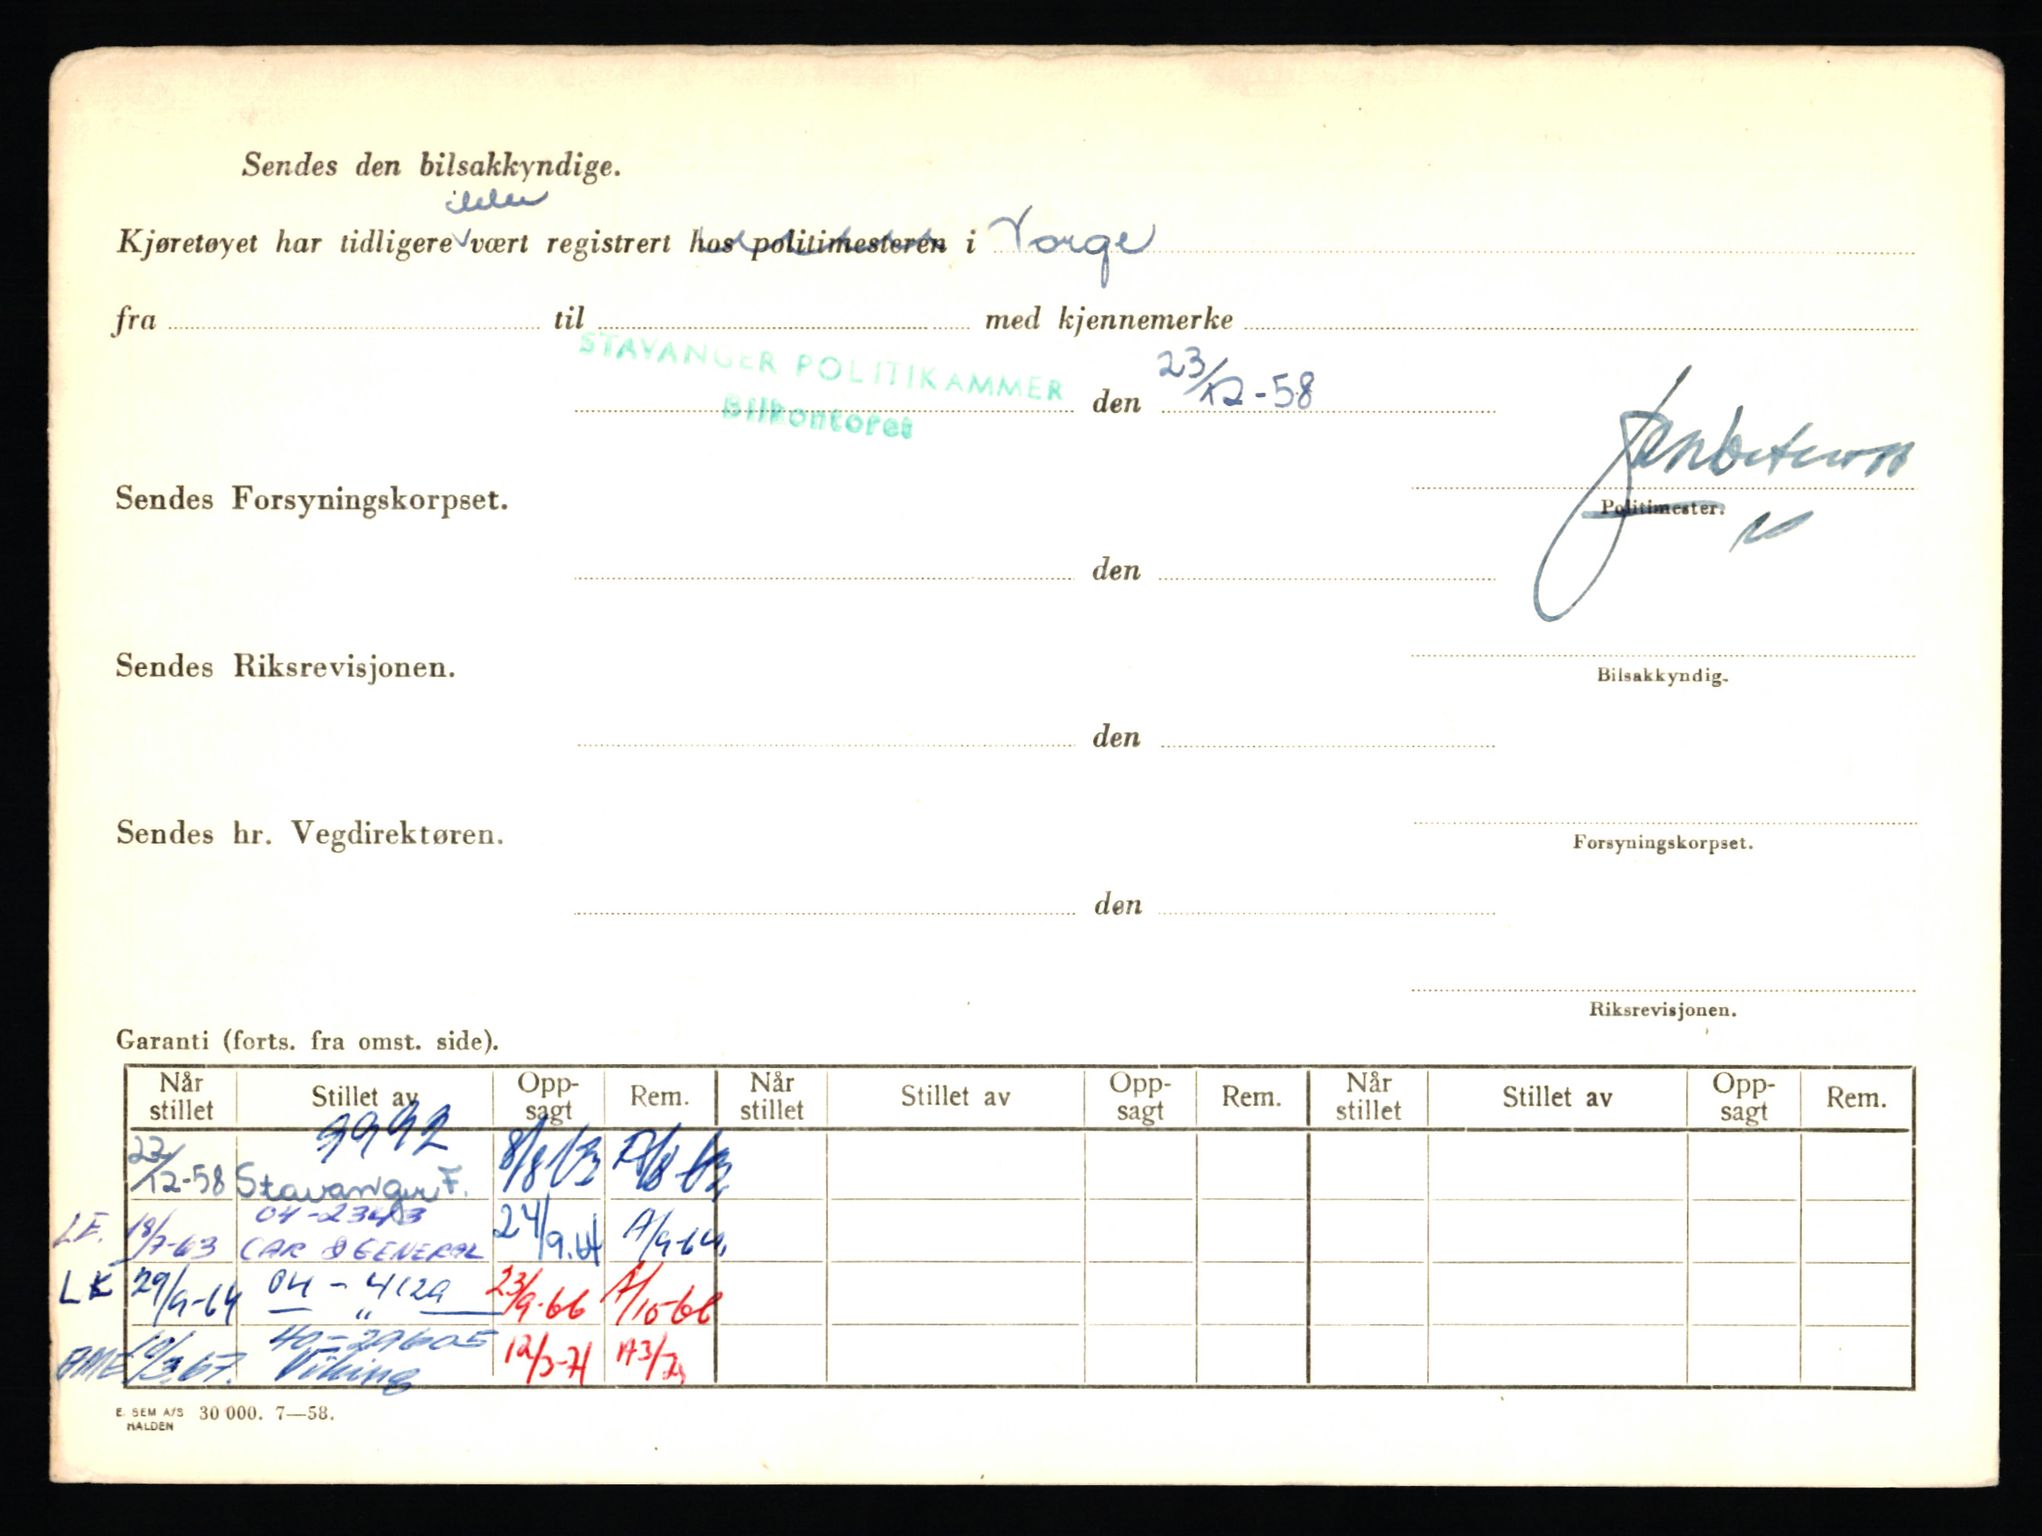 Sendes den bilsakkyndige.
ikke
Kjøretøyet har tidligere vært registrert hos politimesteren i Norge
fra til med kjennemerke
STAVANGER POLITIKAMMER
Bilkontoret
den 23/12-58
Politimester.
Sendes Forsyningskorpset.
den
Bilsakkyndig.
Sendes Riksrevisjonen.
den
Forsyningskorpset.
Sendes hr. Vegdirektøren.
den
Riksrevisjonen.
Garanti (forts. fra omst. side).
Når stillet Stillet av Opp-sagt Rem. Når stillet Stillet av Opp-sagt Rem. Når stillet Stillet av Opp-sagt Rem.
23/12-58 Stavanger F. 8/8 63
18/7-63 CAR & GENERAL 24/9.64 A/9-64.
LK 29/9-64 04 - 4129 — „ — 23/9-66 A/10-66
40-29605
10/3.67. Viking 12/3-71 A3/71
E. SEM A/S HALDEN 30 000. 7—58.